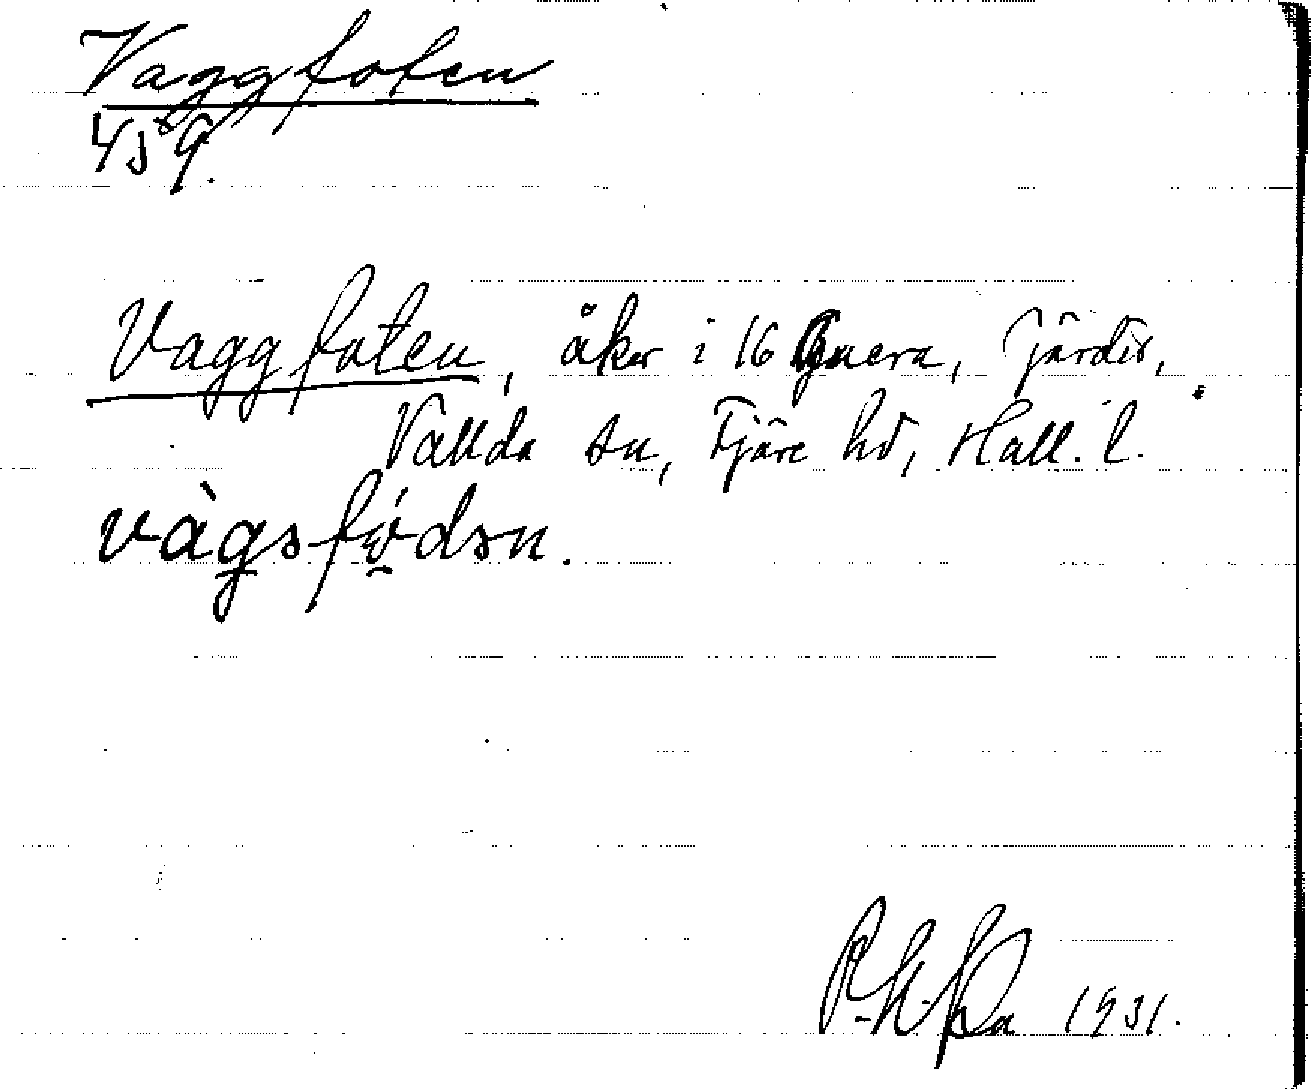 Vaggfoten
459.
Vaggfoten, åker i 16 Guera, Fjärdis,
Vallda sn, Fjäre hd, Hall. l.
vàgsfódsn.
1931.